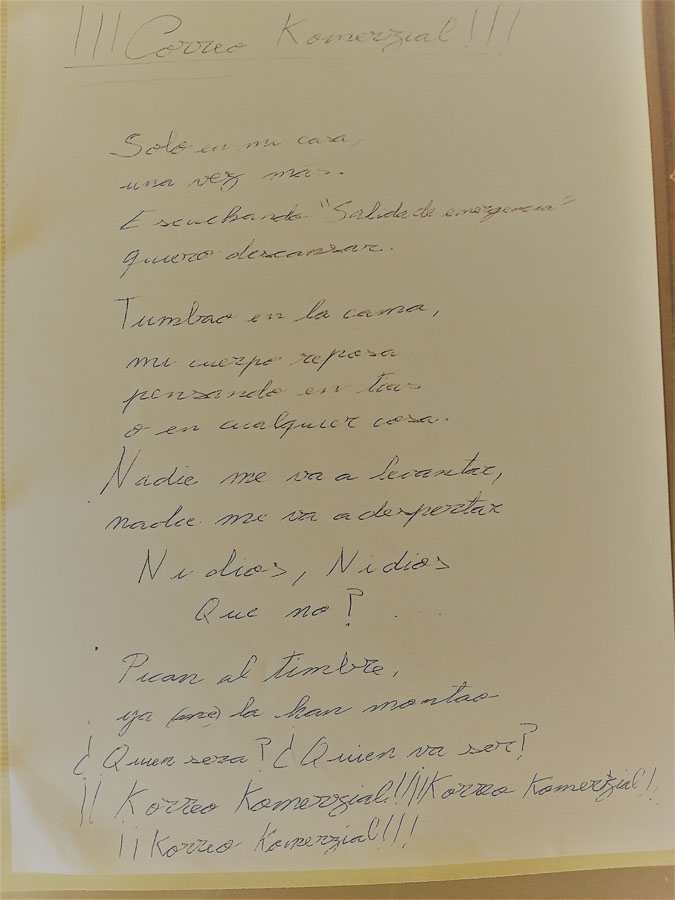 ¡¡¡Correo Komerzial!!!
Solo en mi casa,
una vez más.
Escuchando "Salida de emergencia"
quiero descansar.
Tumbao en la cama,
mi cuerpo reposa
pensando en
o en cualquier cosa.
Nadie me va a levantar,
nadie me va a despertar
Ni dios, Ni dios
Que no? ...
Pican al timbre,
ya (me) la han montao
¿Quien sera? ¿Quien va ser?
¡¡Korreo Komerzial!! ¡¡Korreo Komerzial!
¡¡Korreo Komerzial!!!